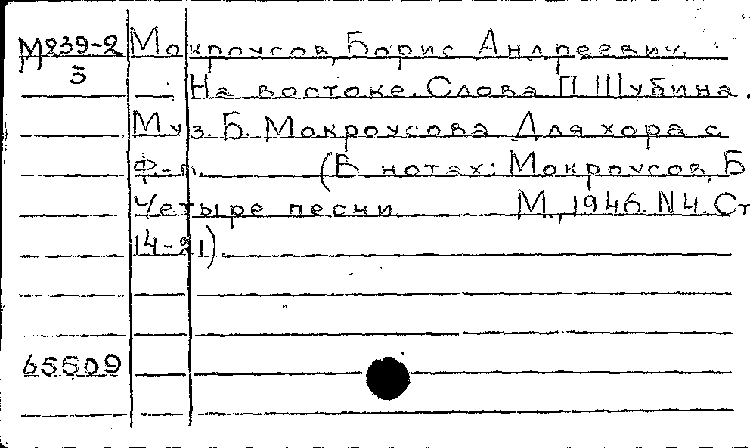 М239-2 Мокроусов, Борис Андреевич.
3 На востоке. Слова П. Шубина.
Муз. Б. Мокроусова. Для хора с
ф-п. (В нотах: Мокроусов, Б.
Четыре песни. М., 1946. N4. Ст
14-21).